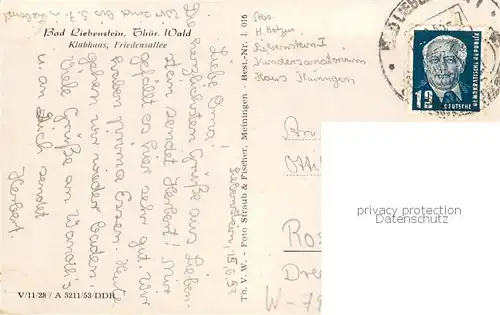 Bad Liebenstein, Thür. Wald
Klubhaus, Friedensallee
Liebenstein, 15.6.53
Liebe Oma!
Die herzlichsten Grüße aus Lieben-
stein sendet Herbert! Mir
gefällt es hier sehr gut. Wir
haben prima Essen. Heute
gehen wir wieder baden.
Viele Grüße an
u. an Dich sendet
Herbert.
Wir sind bis 3.7. in
V/11/28/ A 5211/53 DDR
Th. V. W. - Foto Straub & Fischer, Meiningen - Best.-Nr. L 016
Abs.
H.
Liebenstein I
Kindersanatorium
Haus Thüringen
BAD LIEBEN
12
DEUTSCHE
DEMOKRATISCHE REPUBLIK
privacy protection
privacy protection
Ott
Ro
Dre
W-79